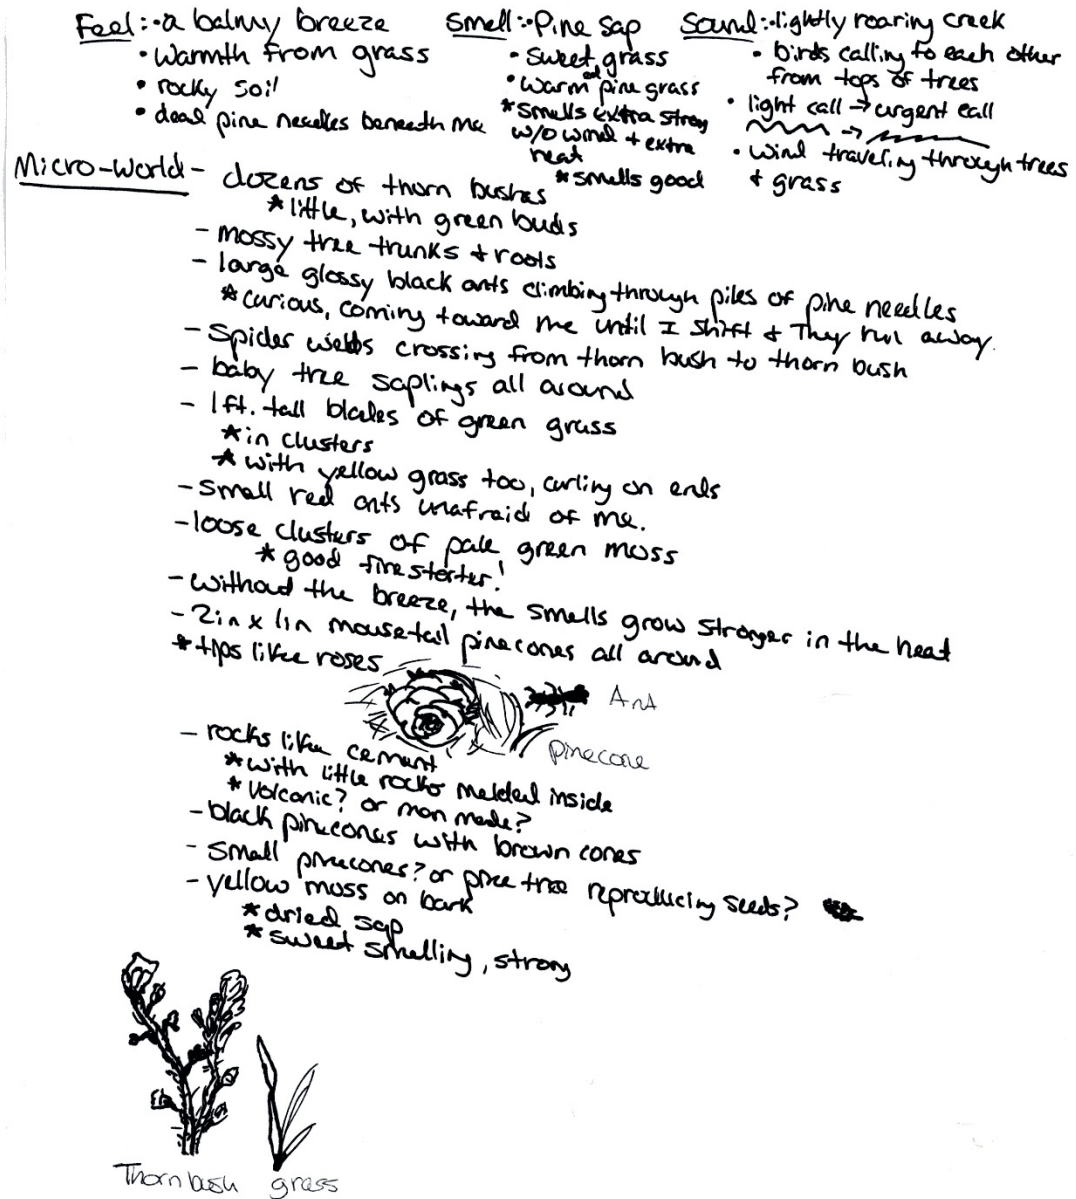 Feel: • a balmy breeze
• warmth from grass
• rocky soil
• dead pine needles beneath me
Smell: • Pine sap
• sweet grass
• warm pine grass
* smells extra strong
w/o wind + extra
heat
* smells good
Sound: • lightly roaring creek
• birds calling to each other
from tops of trees
• light call → urgent call
→
• wind traveling through trees
+ grass
Micro-World - dozens of thorn bushes
* little, with green buds
- mossy tree trunks + roots
- large glossy black ants climbing through piles of pine needles
* curious, coming toward me until I shift + They run away.
- Spider webs crossing from thorn bush to thorn bush
- baby tree saplings all around
- 1ft. tall blades of green grass
* in clusters
* with yellow grass too, curling on ends
- small red ants unafraid of me.
- loose clusters of pale green moss
* good fire starter!
- without the breeze, the smells grow stronger in the heat
- 2in x 1in mousetail pinecones all around
* tips like roses
Ant
pinecone
- rocks like cement
* with little rocks melded inside
* Volcanic? or man made?
- black pinecones with brown cones
- small pinecones? or pine tree reproducing seeds?
- yellow moss on bark
* dried sap
* sweet smelling, strong
Thornbush grass